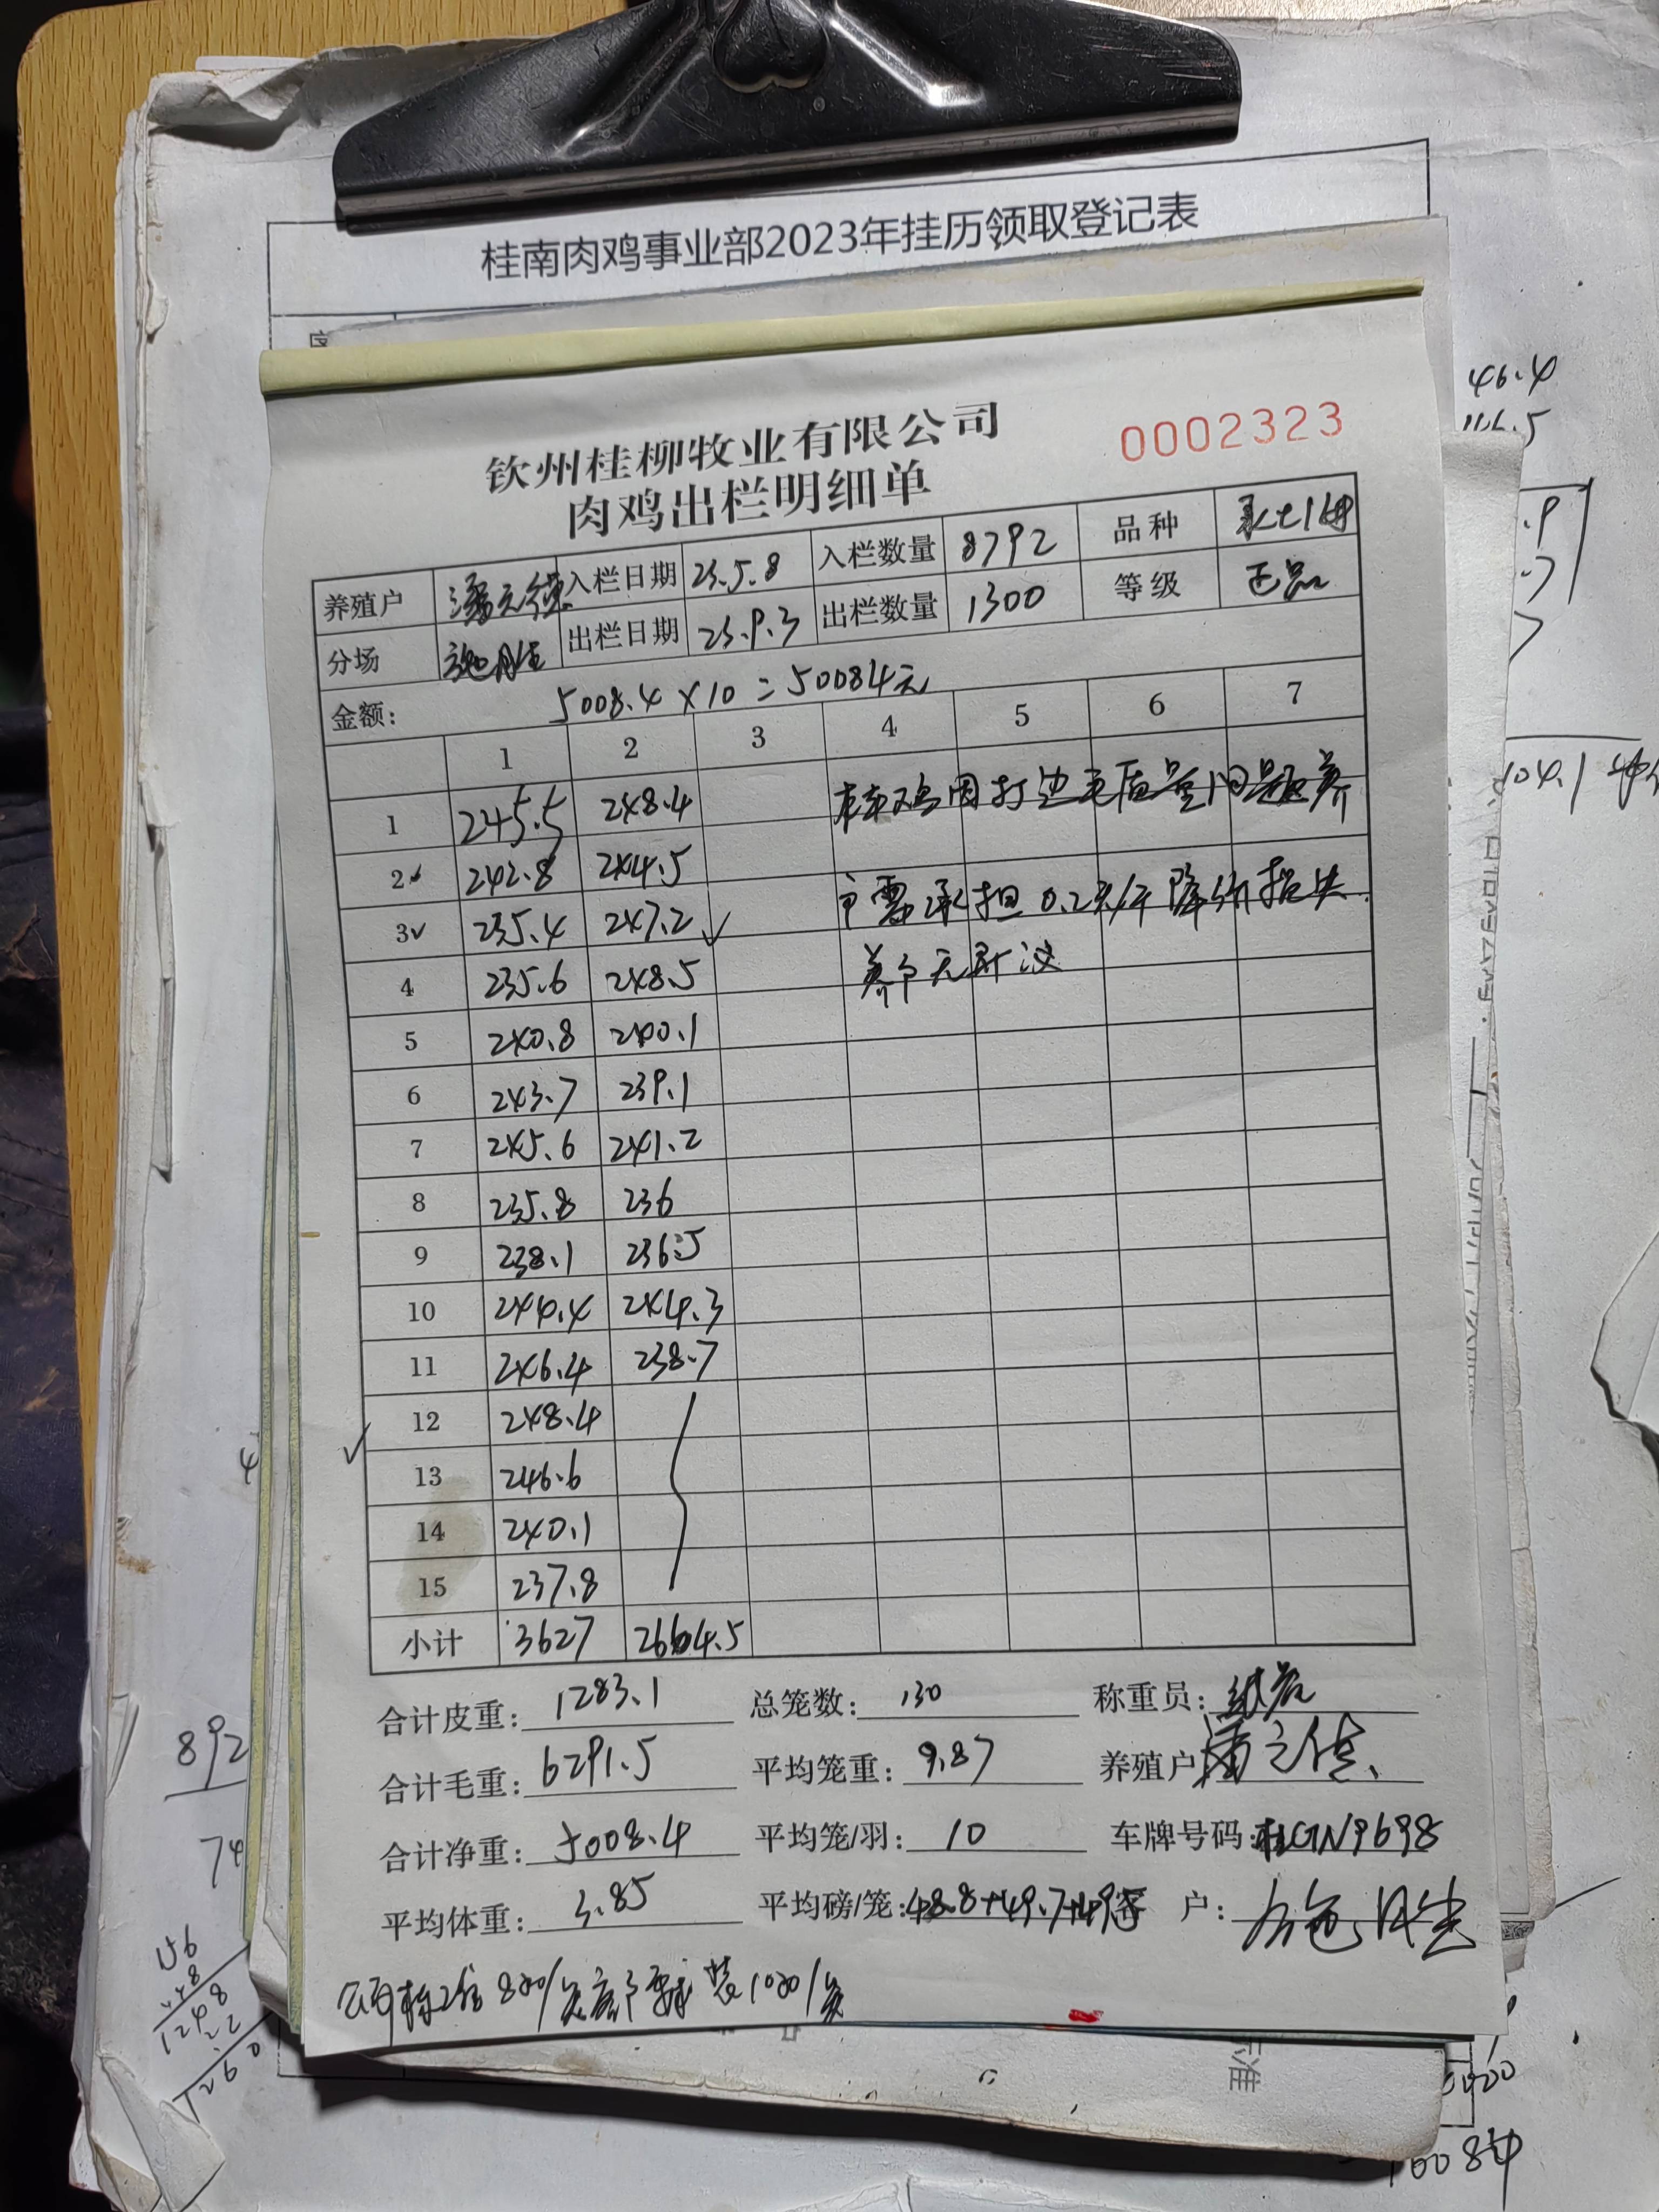 桂南肉鸡事业部2023年挂历领取登记表
钦州桂柳牧业有限公司
0002323
肉鸡出栏明细单
养殖户 入栏日期 23.5.8 入栏数量 8792 品种
分场 出栏日期 23.9.3 出栏数量 1300 等级 正品
金额: 5008.4×10=50084元
1 2 3 4 5 6 7
1 245.5 248.4 鸡因打边毛质量问题养
2 242.8 244.5
3 235.4 247.2 户需承担0.2元/斤降价损失.
4 235.6 248.5 养户无异议
5 240.8 240.1
6 243.7 239.1
7 245.6 241.2
8 235.8 236
9 238.1 236.5
10 244.4 244.3
11 246.4 238.7
12 248.4
13 246.6
14 240.1
15 237.8
小计 3627 2664.5
合计皮重: 1283.1 总笼数: 130 称重员:
合计毛重: 6291.5 平均笼重: 9.87 养殖户
合计净重: 5008.4 平均笼/羽: 10 车牌号码: 桂GN9698
平均体重: 3.85 平均磅/笼: 48.8+49.7+49 户:
46.4
892
74
1248
1260